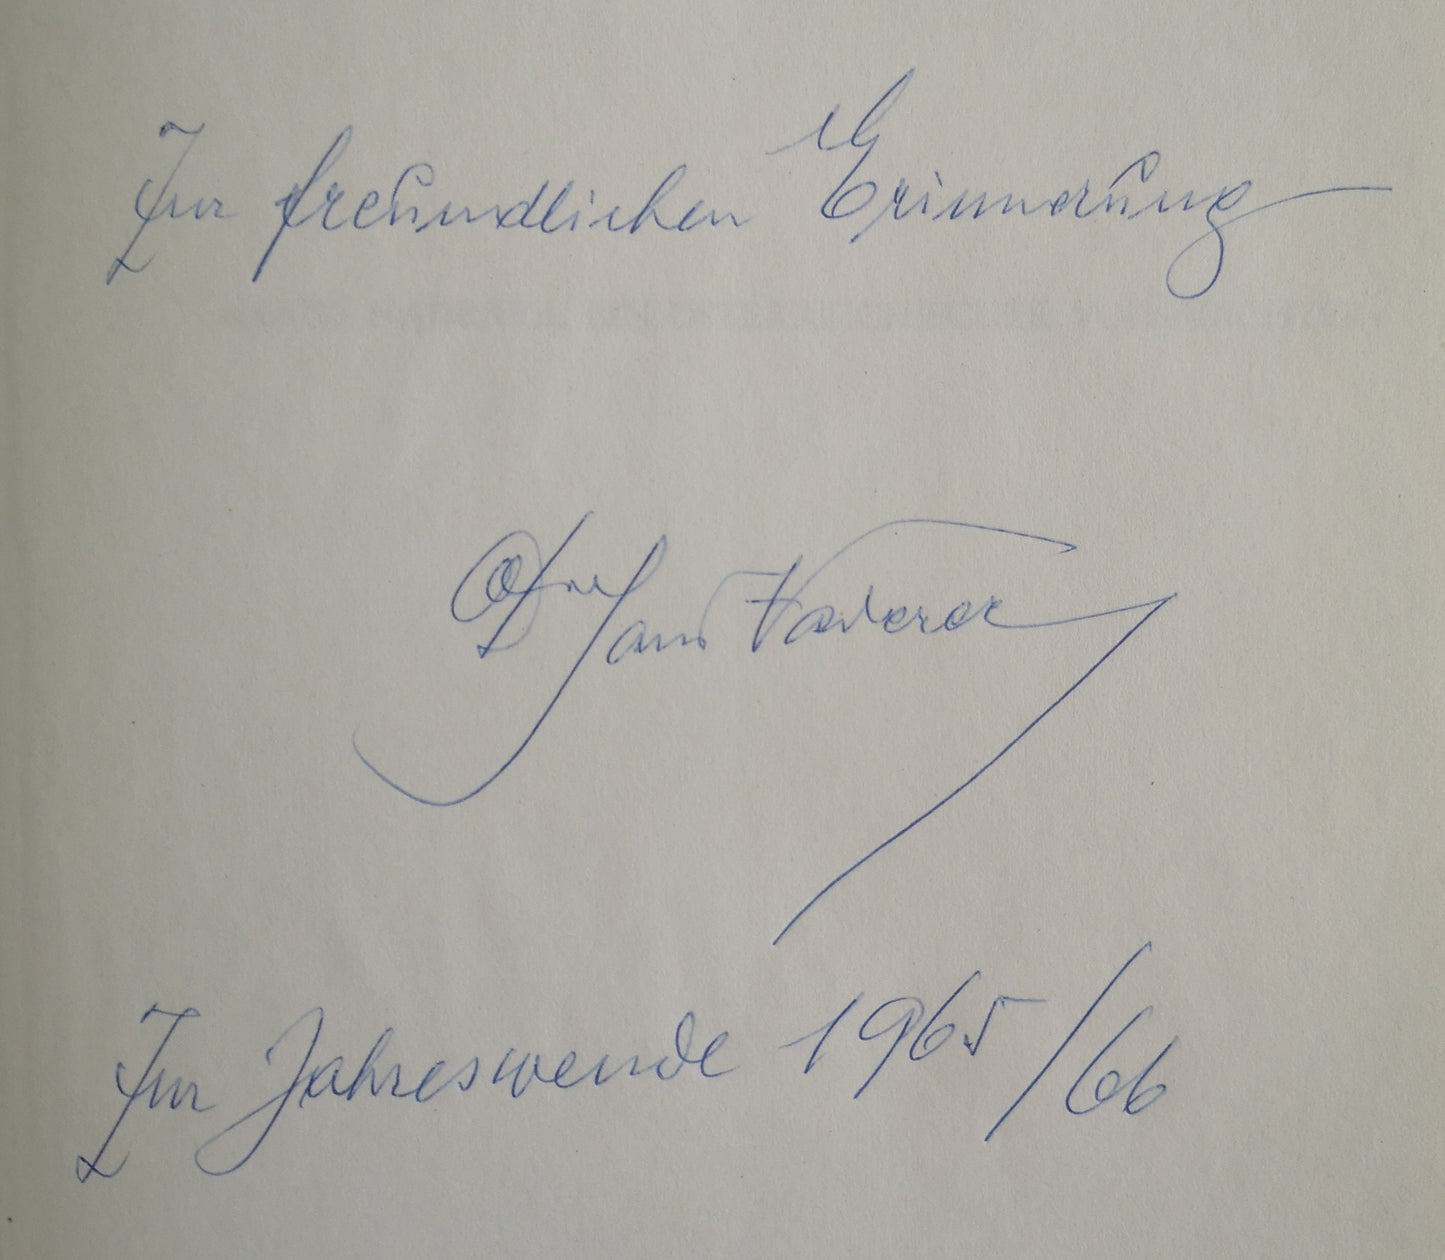 Zur freundlichen Erinnerung
Hans Naderer
Zur Jahreswende 1965/66